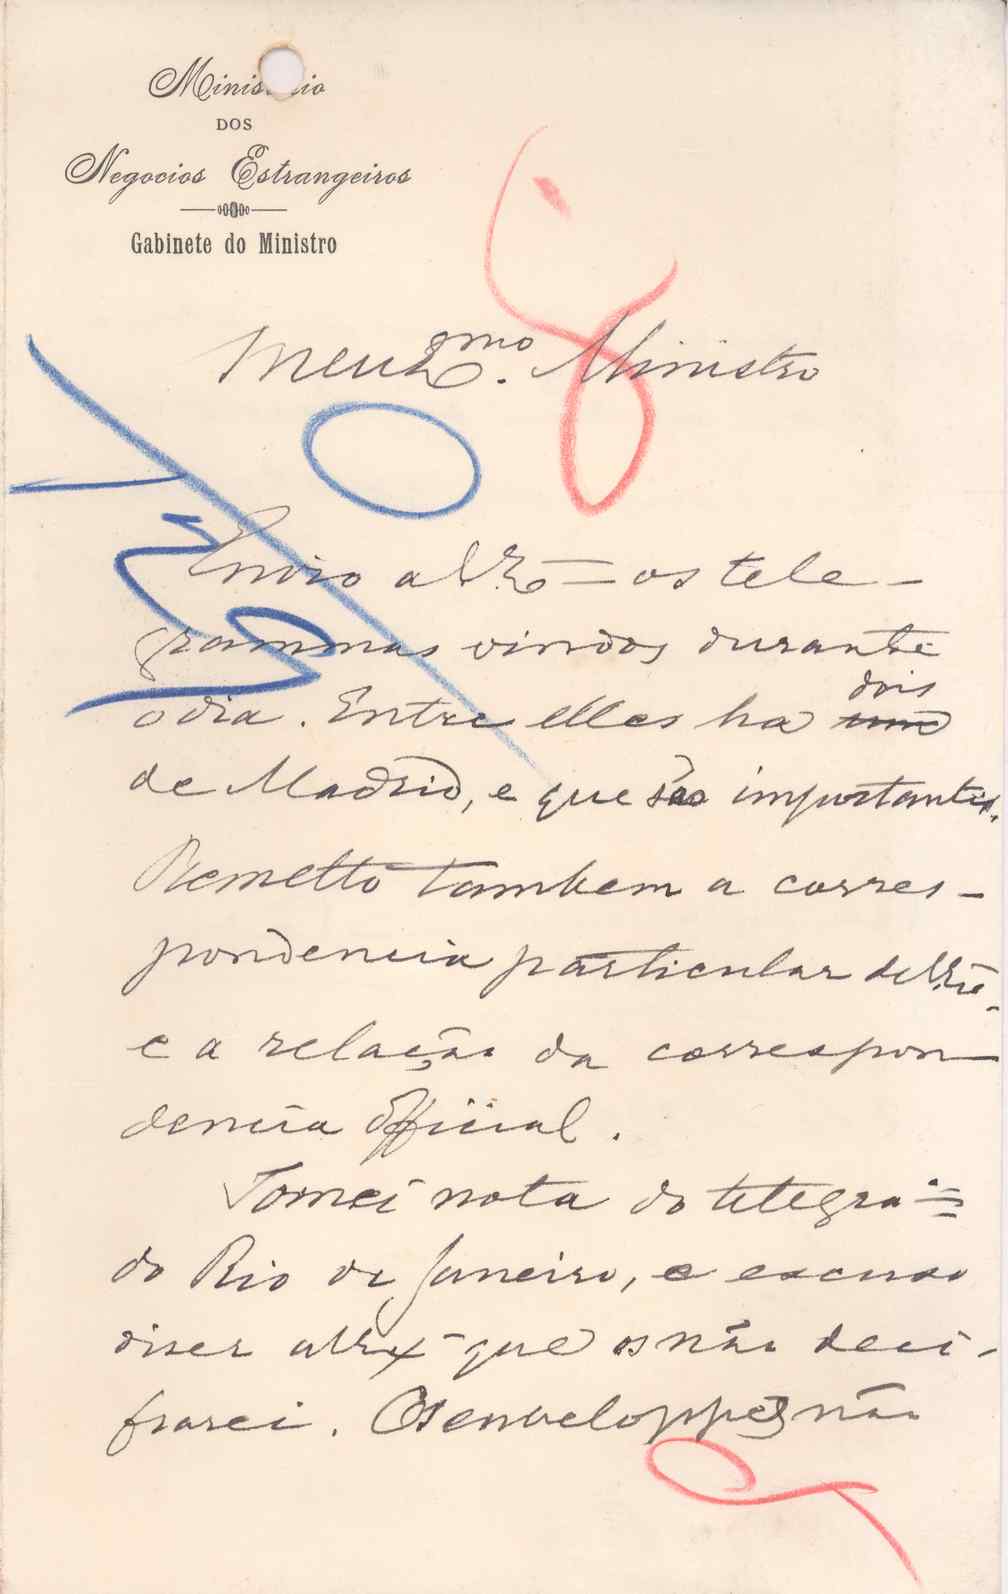 Ministerio
DOS
Negocios Estrangeiros
Gabinete do Ministro
Meu Exmo. Ministro
Envio a V. Exª os tele-
grammas vindos durante
o dia. Entre elles ha dois
de Madrid, e que são importantes.
Remetto tambem a corres-
pondencia particular de V. Exª
e a relação da correspon
dencia official.
Tomei nota do telegra-
do Rio de Janeiro, e escuso
diser a V. Exª que os não deci-
frarei. Os enveloppes não